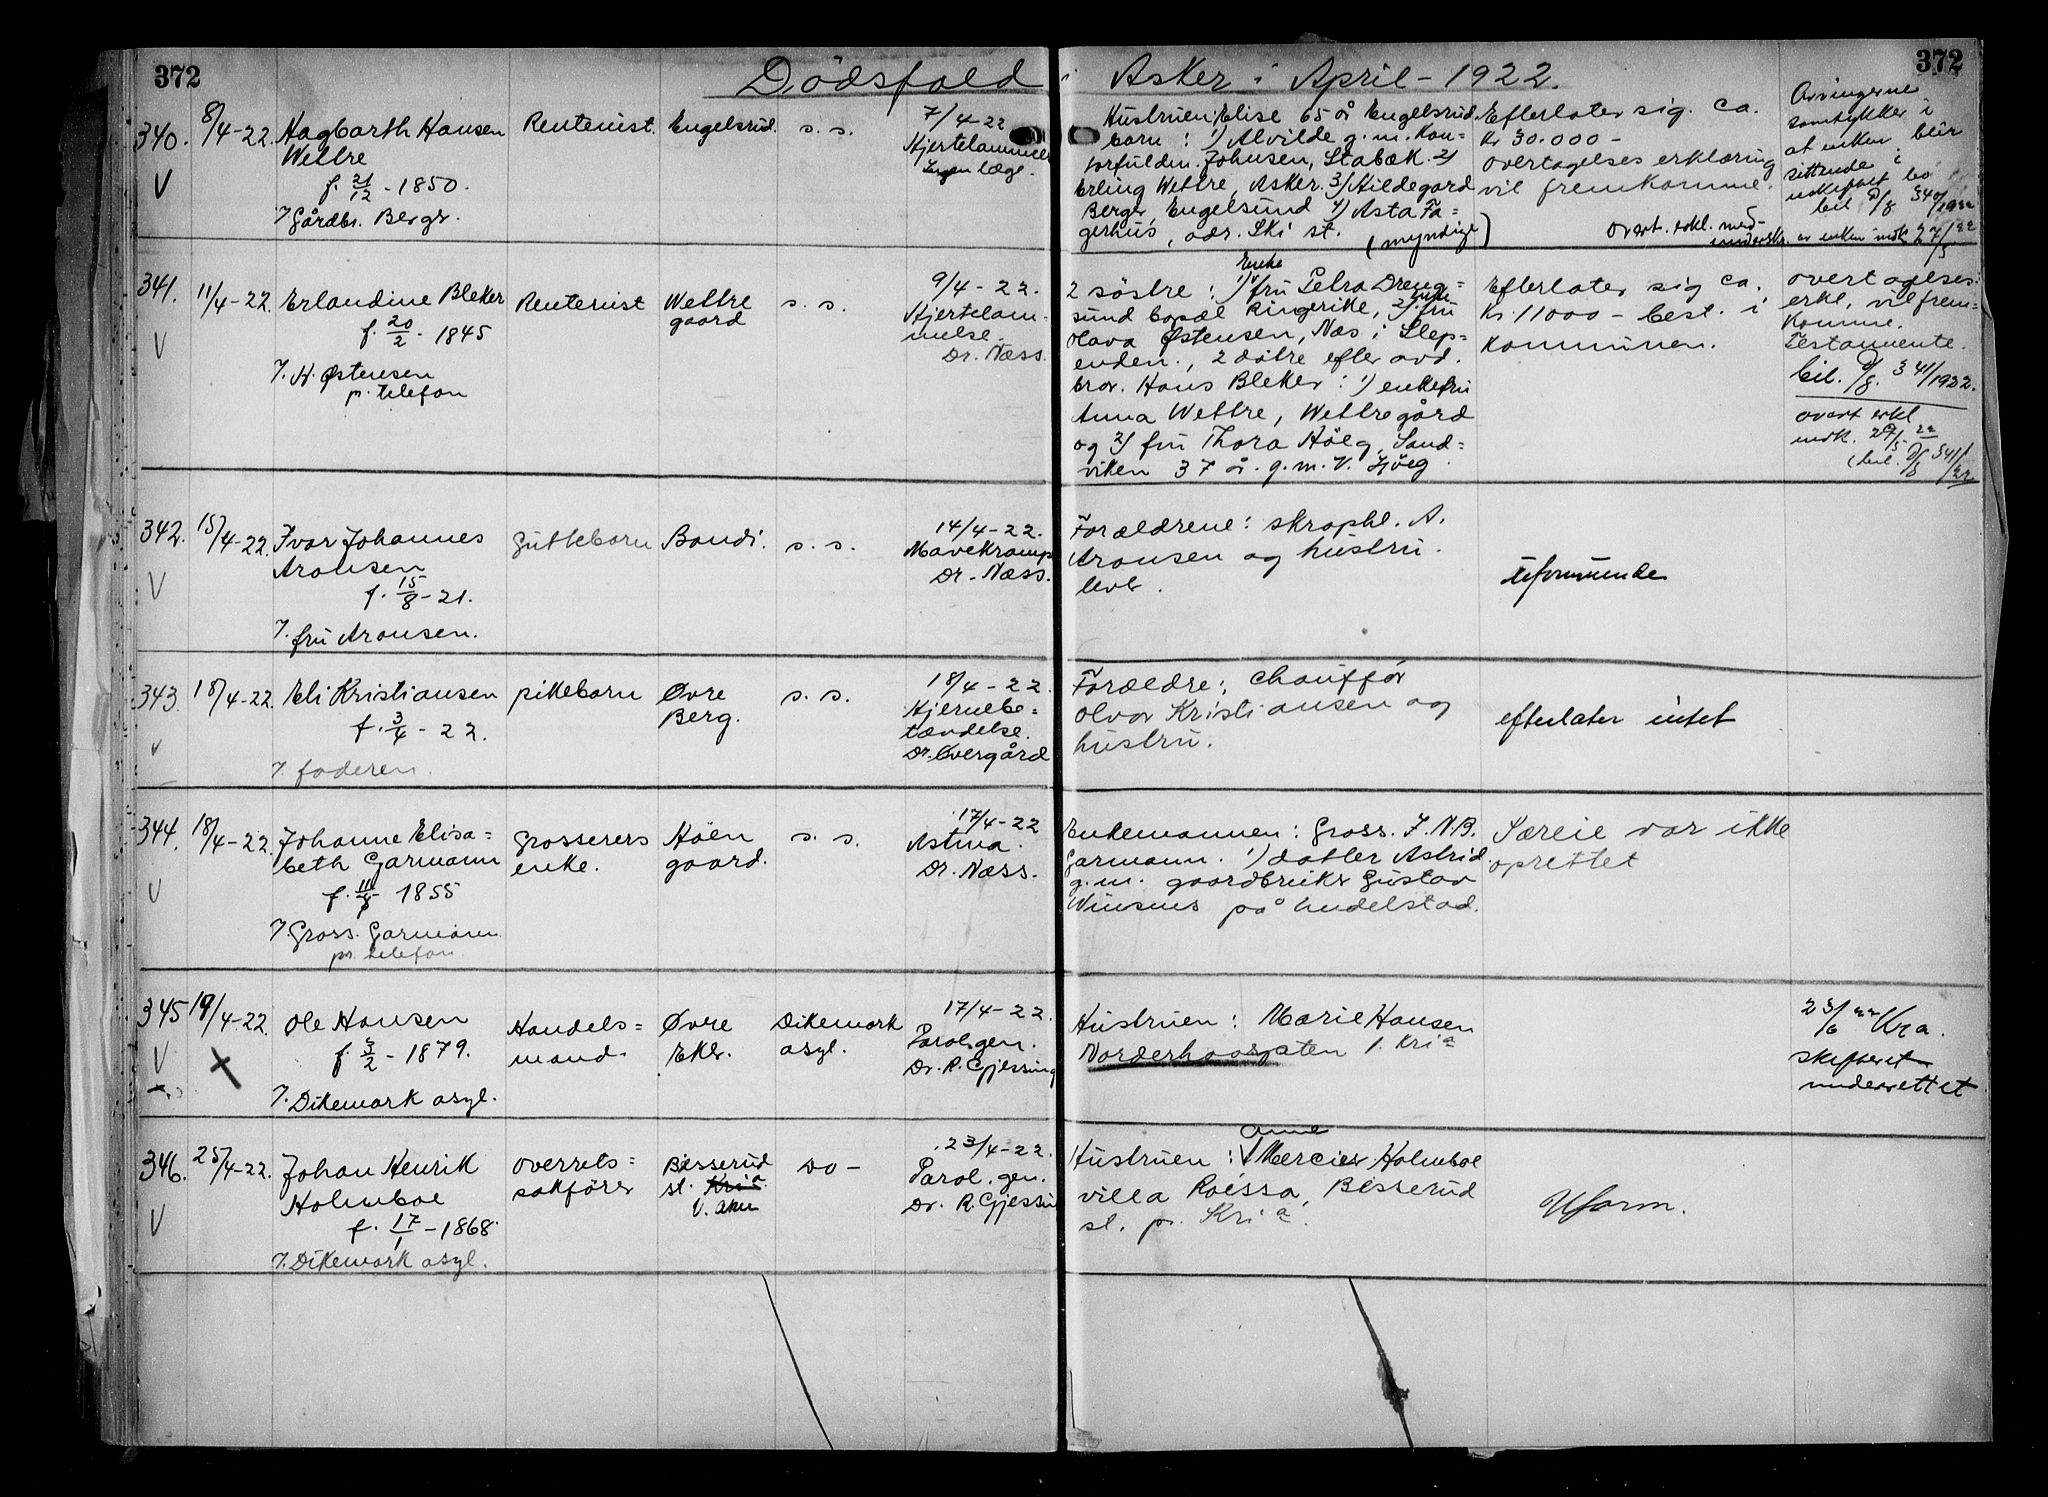 372
372
Dödsfald i Asker i April - 1922.
340.
8/4-22.
Hagbarth Hansen
Wettre
f. 21/12 - 1850.
7. Gårdbr. Berger.
Renteinist.
Engelsrud.
s. s.
7/4-22
Hjertelammelse
Ingen læge.
Hustruen: Elise 65 år Engelsrud.
barn: 1) Alvilde g. m. Kon-
torfuldm. Johnsen, Stabæk. 2)
Erling Wettre, Asker. 3) Hildegard
Berger, Engelsrud 4) Asta Fa=
gerhus, adr. Ski st. (myndige)
Efterlater sig. ca.
Kr 30.000 -
overtagelses erklæring
vil fremkomme.
overt. erkl. med
underskr. av enken indk. 27/5 22
Arvingerne
samtykker i
at enken blir
sittende i
uskiftet bo
bil D/f 340/1922
341.
11/4-22.
Erlandine Bleker
f. 20/2 - 1845
7. H. Østensen
p. telefon
Renteinist
Wettre
gaard
s. s.
9/4-22.
Hjertelam-
melse.
Dr. Næss.
2 søstre: 1) Enke fru Petra Dreng=
sund bopæl Ringerike, 2) enke fru
Olava Østensen, Næs i Slep=
enden., 2 døtre efter avd.
bror. Hans Bleker: 1) enkefru
Anna Wettre, Wettregård
og 2) fru Thora Höeg, Sand=
viken 37 år. g. m. V. Höeg.
Efterlater sig ca.
Kr. 11000 - best. i
kommunen.
overtagelses:
erkl. vil frem=
komme.
Testamente.
bil. D/f. 341/1922.
overt erkl
indk. 27/5 22
(bil. D/f 341/22
342.
15/4-22.
Ivar Johannes
Aronsen
f. 15/8 - 21.
7. fru Aronsen.
Guttebarn
Bondi.
s. s.
14/4-22.
Mavekrampe
Dr. Næss.
Forældrene: skraphl. A.
Aronsen og hustru.
lever.
uformuende
343.
18/4-22.
Eli Kristiansen
f. 3/4 - 22.
7. faderen.
pikebarn
Øvre
Berg.
s. s.
18/4-22.
Hjernebe=
tændelse.
Dr. Overgård
Forældre: Chauffør
Olvar Kristiansen og
hustru.
efterlater intet
344.
18/4-22.
Johanne Elisa=
beth Garmann
f. 11/8 1855
7. Gross. Garmann
pr. telefon.
Grosserers
enke.
Höen
gaard.
s. s.
17/4-22
Astma.
Dr. Næss.
Enkemannen: Gross. J. N. B.
Garmann. 1) datter Astrid
g. m. gaardbruker Gustav
Winsnes på Hudelstad.
Særeie var ikke
oprettet
345
19/4-22.
Ole Hansen
f. 3/2 - 1879.
7. Dikemark asyl.
Handels=
mand.
Øvre
Eker.
Dikemark
asyl.
17/4-22.
Paral. gen.
Dr. R. Gjessing
Hustruen: Marie Hansen
Norderhovsgaten 1. Kria
23/6 22 Kra.
skifteret
underrettet
346.
25/4-22.
Johan Henrik
Holmboe
f. 17/1 - 1868.
7. Dikemark asyl.
Overrets=
sakfører
Besserud
st. Kria.
V. Aker
Do -
23/4-22.
Paral. gen.
Dr. R. Gjessing
Hustruen: Anne Mercier Holmboe
villa Roéssa, Besserud
st. pr. Kria.
Uform.